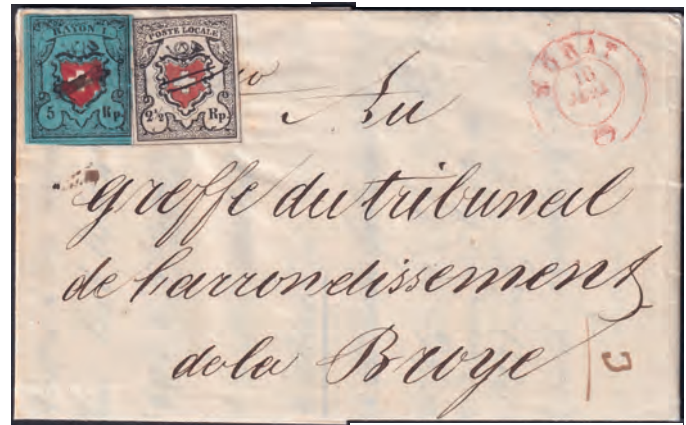 RAYON I.
5 Rp.
POSTE LOCALE
2½ Rp.
MORAT
16
Au
greffe du tribunal
de l'arrondissement
de la Broye